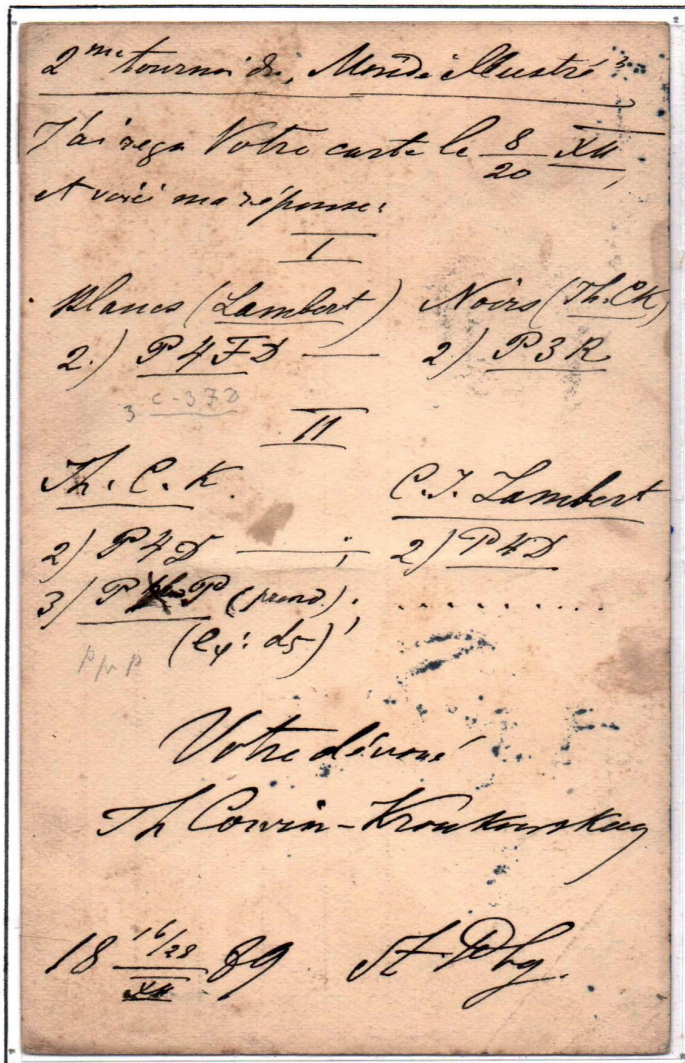 2me tournoi du „Monde illustré"
J'ai reçu Votre carte le 8/20 XII,
et voici ma réponse:
I
Blancs (Lambert) Noirs (Th. C K)
2.) P4FD — 2.) P3R
3 C-3FD
II
Th. C. K. C. J. Lambert
2) P4D —; 2) P4D
3) P P (prend.); . . . . . . . . .
(e4: d5)
P pr P
Votre dévoué
Th Corvin-Kroukowskoy
18 16/28 XII 89 St. Pbg.